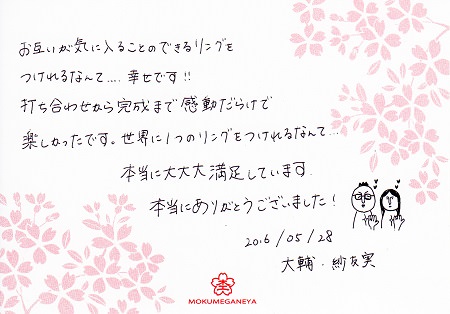 お互いが気に入ることのできるリングを
つけれるなんて.... 幸せです!!
打ち合わせから完成まで感動だらけで
楽しかったです。世界に1つのリングをつけれるなんて...
本当に大大大満足しています
本当にありがとうございました!
2016/05/28
大輔・紗友実
MOKUMEGANEYA